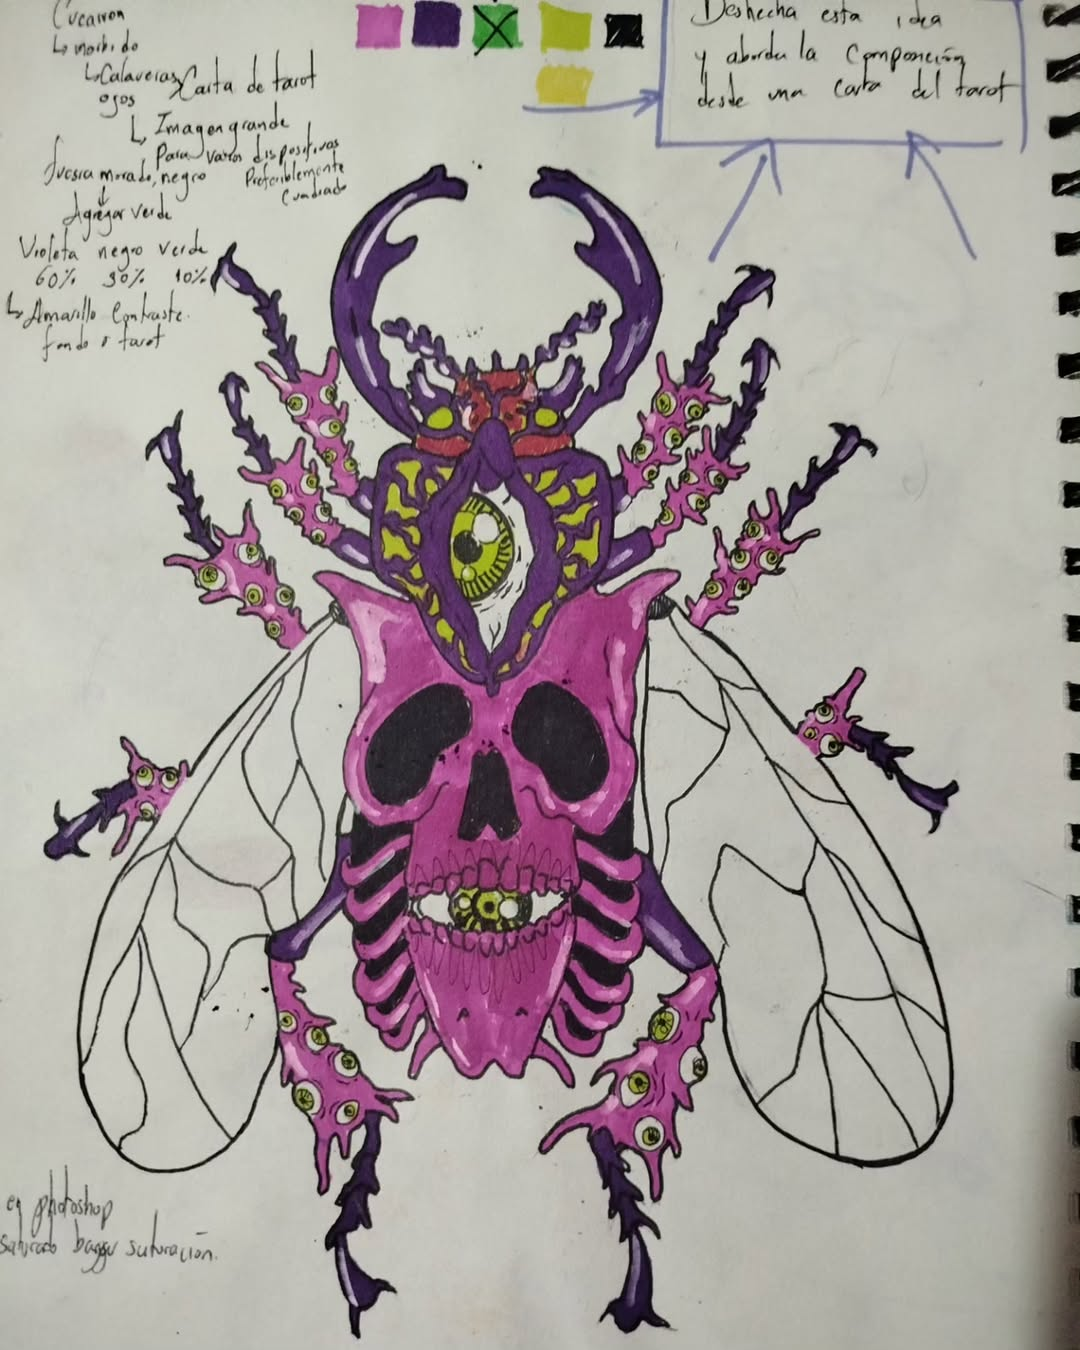 morbido
Calaveras
ojos
Carta de tarot
Imagen grande
Para varios dispositivos
Preferiblemente
Cuadrado
morado, negro
Agregar verde
Violeta negro verde
60% 30% 10%
Amarillo Contraste.
fondo o tarot
Deshecha esta idea
y aborda la Composición
desde una carta del tarot
en photoshop
saturado